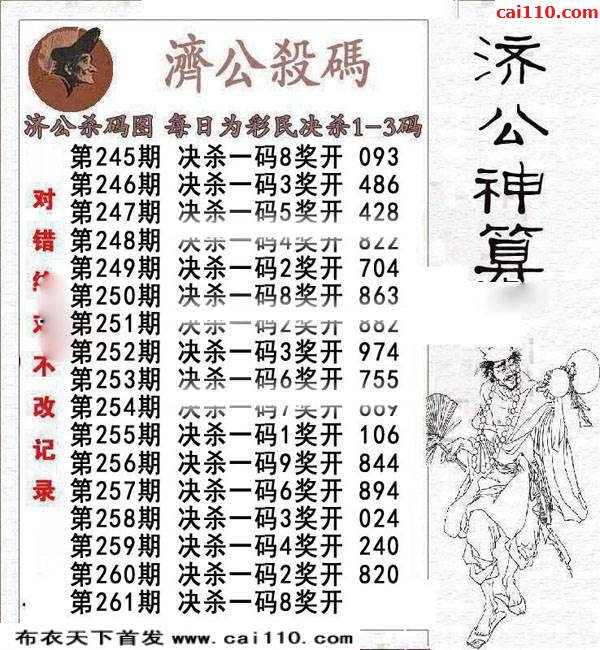 cai110.com
濟公殺碼
济公杀码图 每日为彩民决杀1-3码
第245期 决杀一码8奖开 093
第246期 决杀一码3奖开 486
第247期 决杀一码5奖开 428
第248期 决杀一码4奖开 822
第249期 决杀一码2奖开 704
第250期 决杀一码8奖开 863
第251期 决杀一码2奖开 882
第252期 决杀一码3奖开 974
第253期 决杀一码6奖开 755
第254期 决杀一码7奖开
第255期 决杀一码1奖开 106
第256期 决杀一码9奖开 844
第257期 决杀一码6奖开 894
第258期 决杀一码3奖开 024
第259期 决杀一码4奖开 240
第260期 决杀一码2奖开 820
第261期 决杀一码8奖开
对错 不改记录
济公神算
布衣天下首发 www.cai110.com